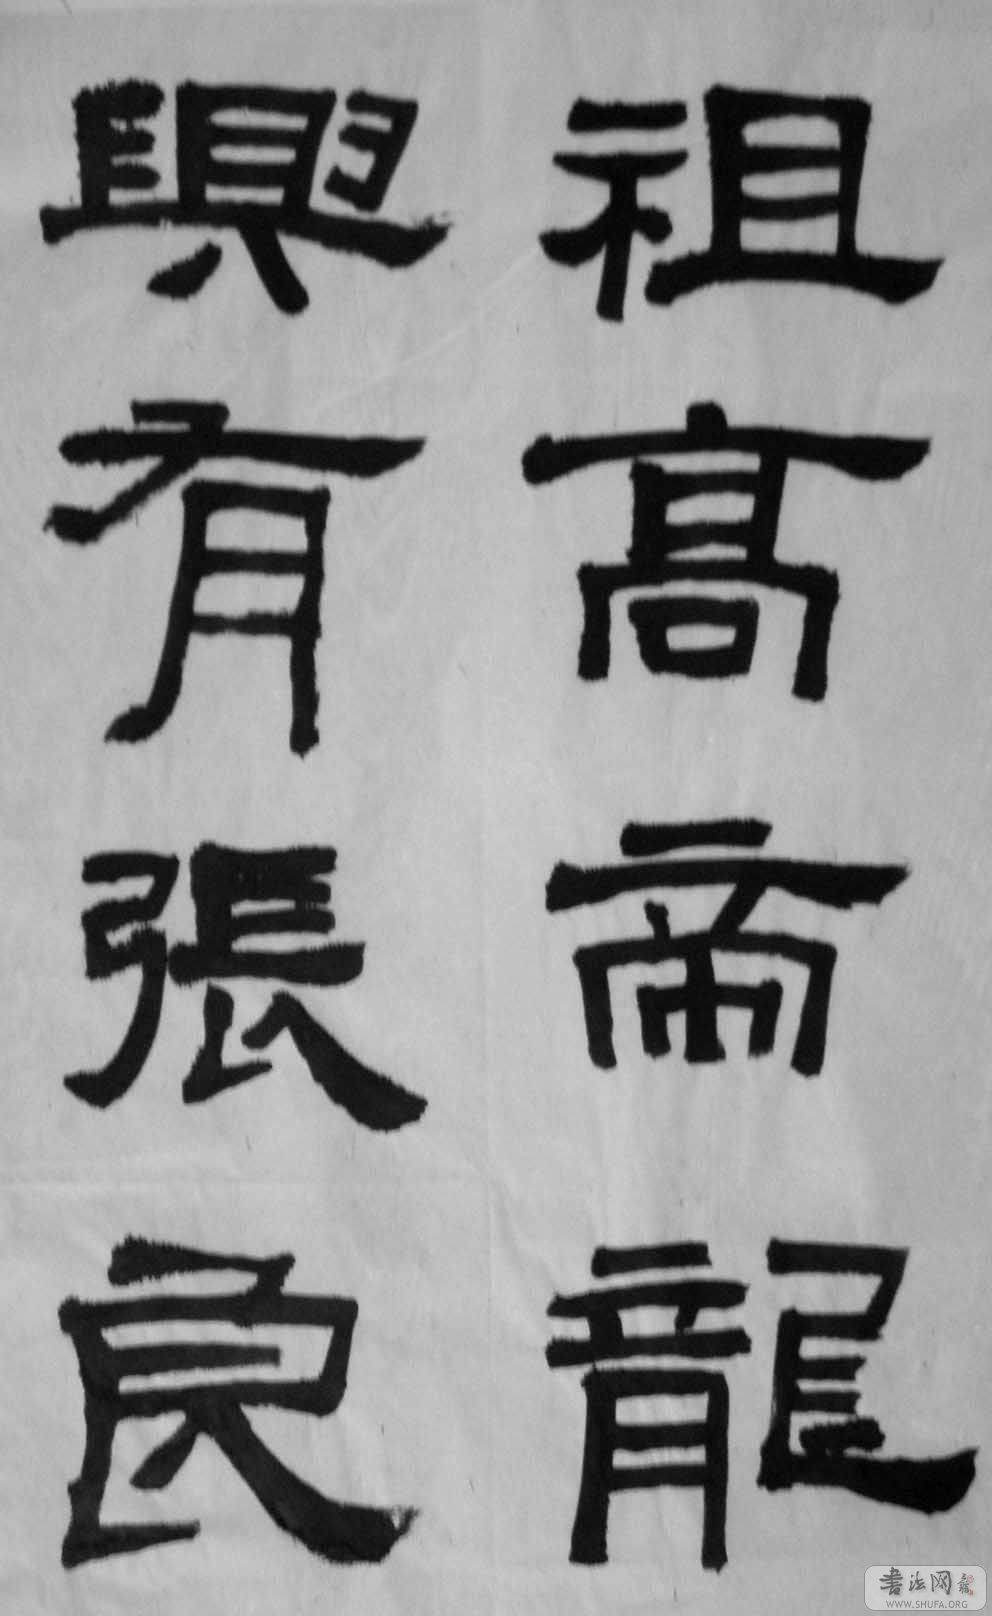 祖高帝龍
興有張良
書法网
WWW.SHUFA.ORG